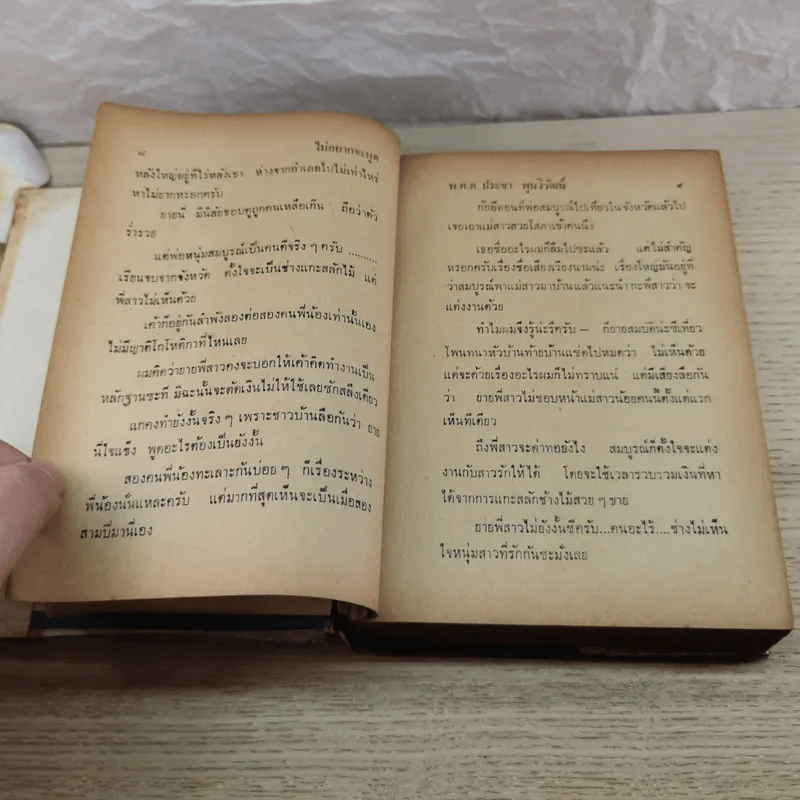 ๘ ไม่อยากจะพูด
หลังใหญ่อยู่ที่ไร่หลังเขา ห่างจากอำเภอไปไม่เท่าไหร่
หาไม่ยากหรอกครับ
ยายนี่ มีนิสัยชอบดูถูกคนเหลือเกิน ถือว่าตัว
ร่ำรวย
แต่พ่อหนุ่มสมบูรณ์เป็นคนดีจริง ๆ ครับ .........
เรียนจบจากจังหวัด ตั้งใจจะเป็นช่างแกะสลักไม้ แต่
พี่สาวไม่เห็นด้วย
เค้าก็อยู่กันลำพังสองต่อสองคนพี่น้องเท่านั้นเอง
ไม่มีญาติโกโหติกาที่ไหนเลย
ผมคิดว่ายายพี่สาวคงจะบอกให้เค้าคิดทำงานเป็น
หลักฐานซะที มิฉะนั้นจะตัดเงินไม่ให้ใช้เลยซักสลึงเดียว
แกคงทำยังงั้นจริง ๆ เพราะชาวบ้านลือกันว่า ยาย
นี่ใจแข็ง พูดอะไรต้องเป็นยังงั้น
สองคนพี่น้องทะเลาะกันบ่อย ๆ ก็เรื่องระหว่าง
พี่น้องนั่นแหละครับ แต่มากที่สุดเห็นจะเป็นเมื่อสอง
สามปีมานี่เอง
พ.ต.ต. ประชา พูนวิวัฒน์ ๙
ก็อีตอนที่พ่อสมบูรณ์ไปเที่ยวในจังหวัดแล้วไป
เจอเอาแม่สาวสวยโสภาเข้าคนนึง
เธอชื่ออะไรผมก็ลืมไปซะแล้ว แต่ไม่สำคัญ
หรอกครับเรื่องชื่อเสียงเรียงนามน่ะ เรื่องใหญ่มันอยู่ที่
ว่าสมบูรณ์พาแม่สาวมาบ้านแล้วแนะนำ กะพี่สาวว่า จะ
แต่งงานด้วย
ทำไมผมจึงรู้น่ะรึครับ — ก็ยายสมบัตินะซีเที่ยว
โพนทนาหัวบ้านท้ายบ้านแซ่ดไปหมดว่า ไม่เห็นด้วย
แต่จะด้วยเรื่องอะไรผมก็ไม่ทราบแน่ แต่มีเสียงลือกัน
ว่า ยายพี่สาวไม่ชอบหน้าแม่สาวน้อยคนนี้ตั้งแต่แรก
เห็นทีเดียว
ถึงพี่สาวจะด่าทอยังไง สมบูรณ์ก็ตั้งใจจะแต่ง
งานกับสาวรักให้ได้ โดยจะใช้เวลารวบรวมเงินที่หา
ได้จากการแกะสลักช้างไม้สวย ๆ ขาย
ยายพี่สาวไม่ยังงั้นซีครับ...คนอะไร้.....ช่างไม่เห็น
ใจหนุ่มสาวที่รักกันซะมั่งเลย